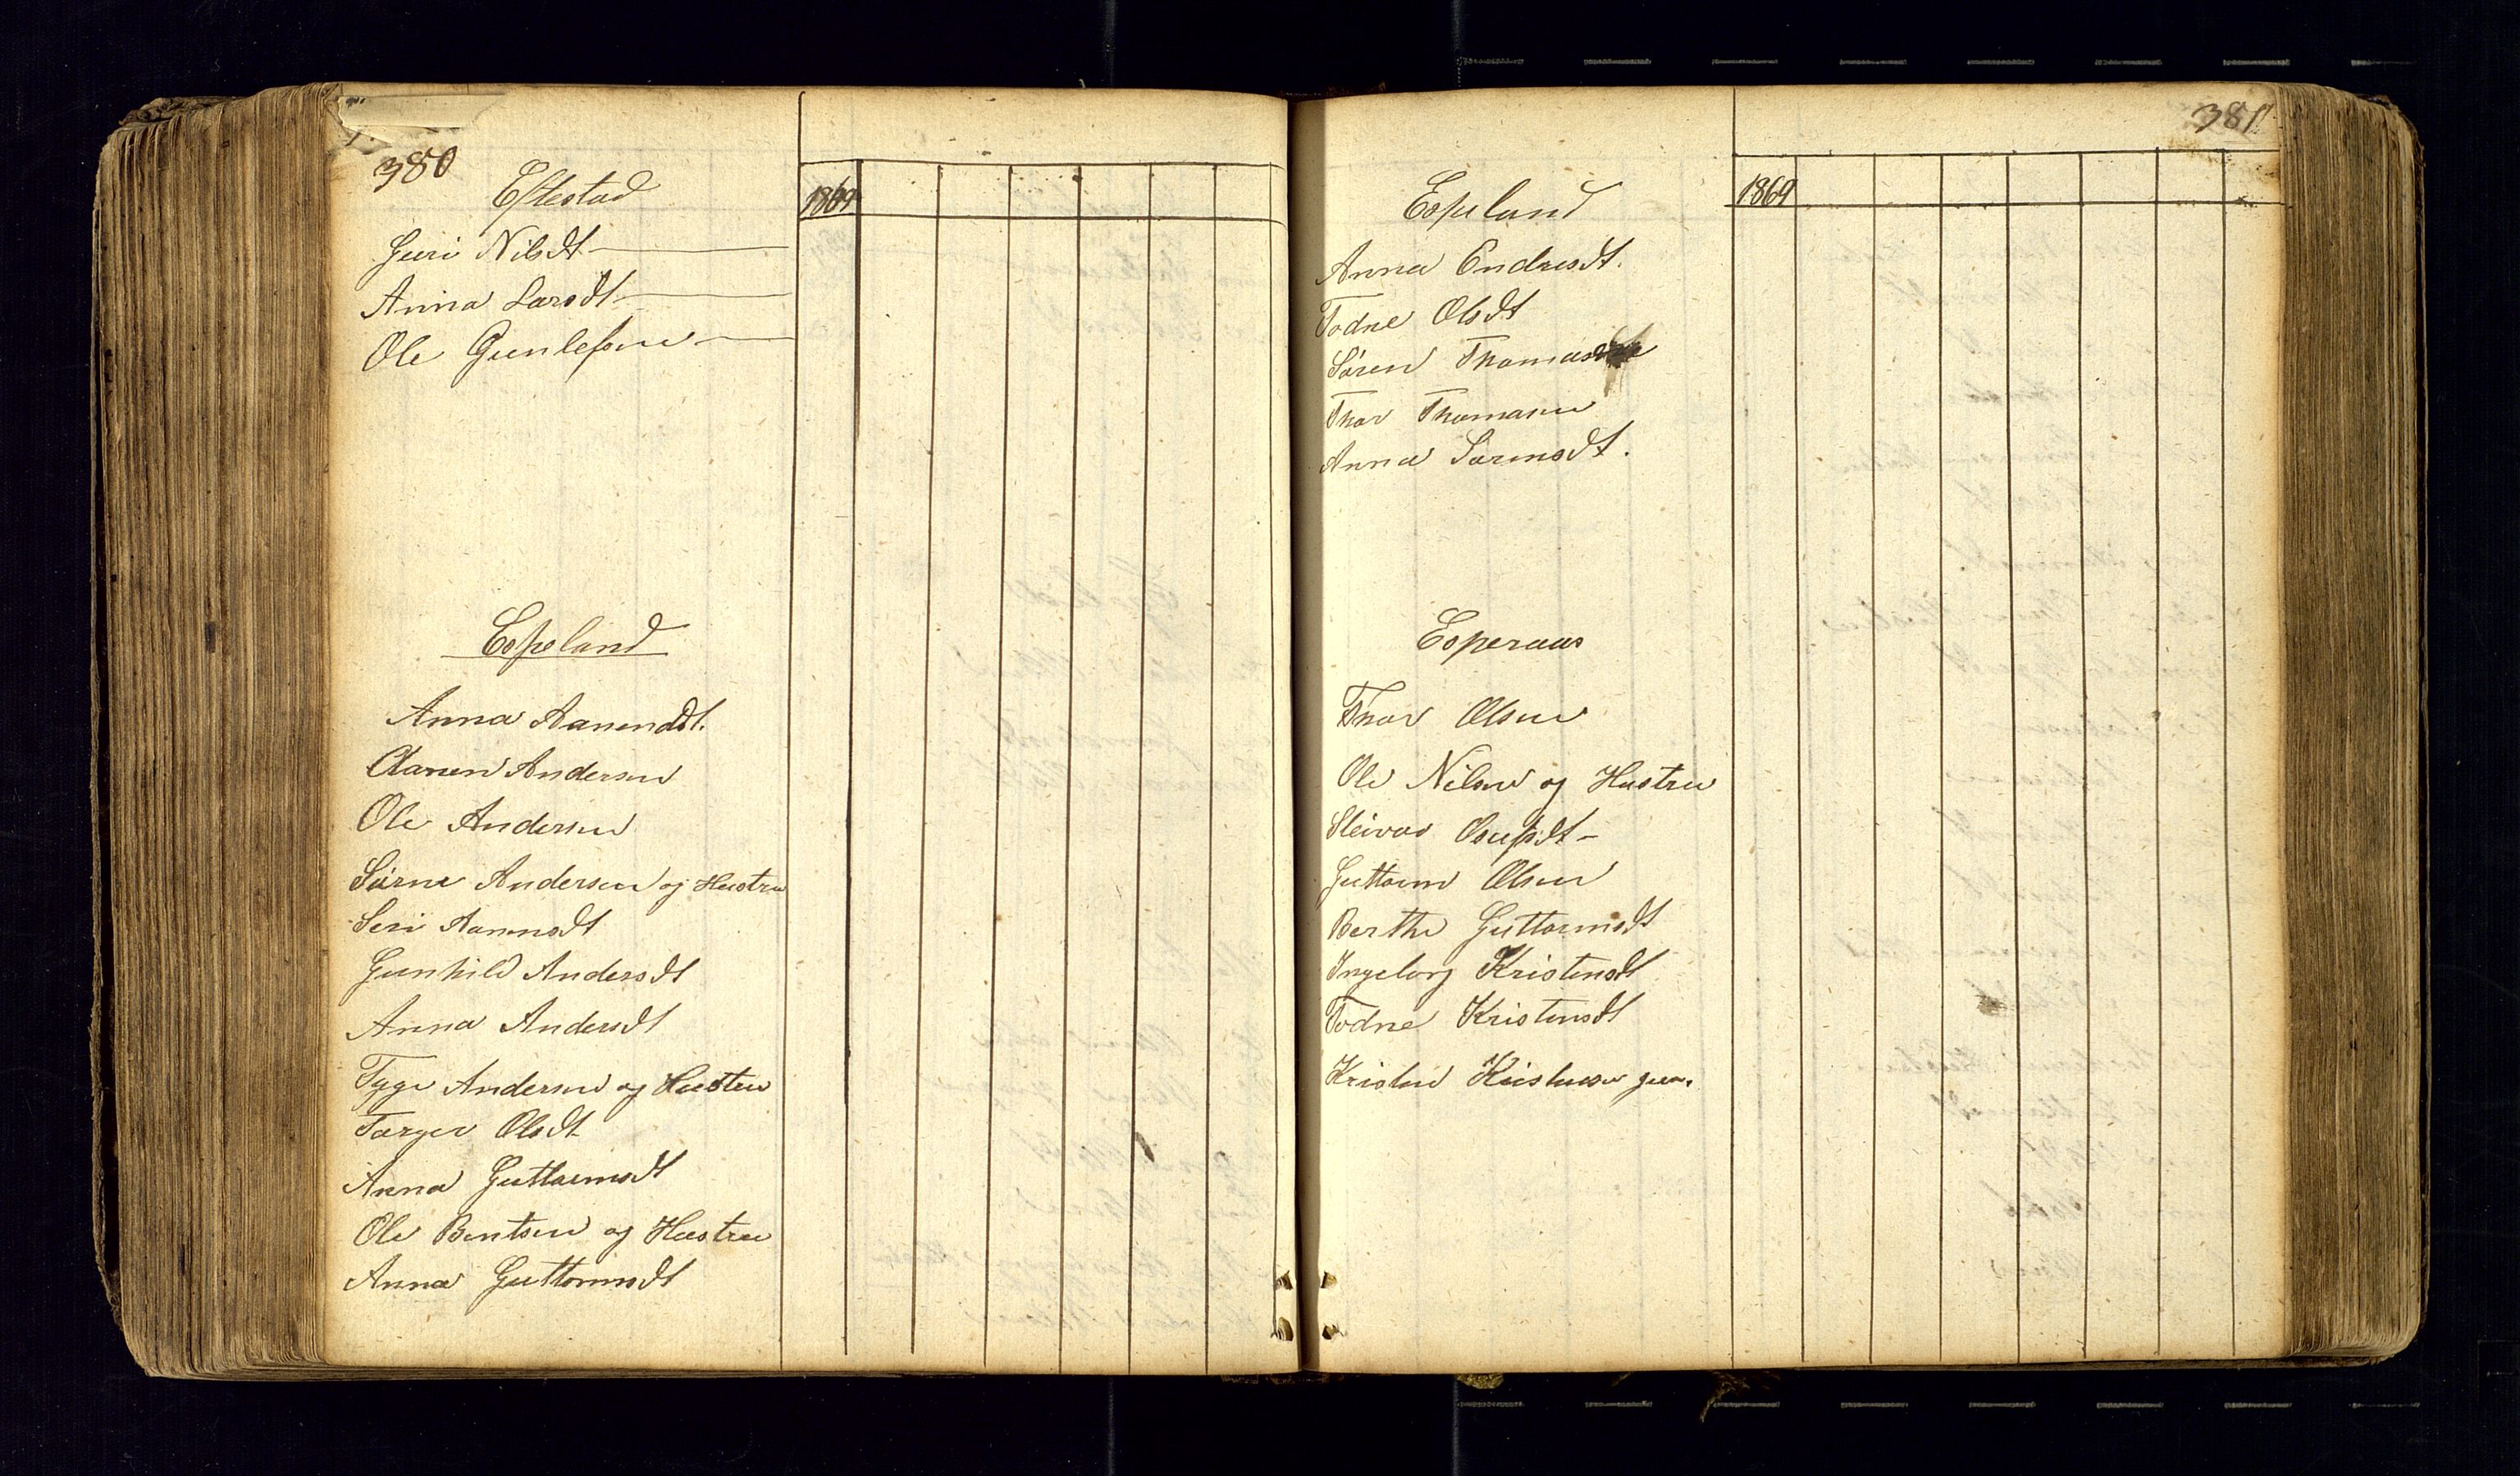 380
Eftestad
1869
Guri Nilsdt
Anna Larsdt
Ole Gunlefsen
Espeland
Anna Aanensdt.
Aanen Andersen
Ole Andersen
Sørine Andersen og Hustru
Seri Aanensdt
Gunhild Andersdt
Anna Andersdt
Tyge Andersen og Hustru
Torger Olsdt
Anna Guttormsdt
Ole Bentsen og Hustru
Anna Guttormsdt
381
Espeland
1869
Anna Endresdt.
Todne Olsdt
Søren Thomas
Thor Thomasen
Anna Sørensdt.
Esperaas
Thor Olsen
Ole Nilsen og Hustru
Sleivor Osufsdt
Guttorm Olsen
Berthe Guttormsdt
Ingeborg Kristensdt
Todne Kristensdt
Kristen Kristensen